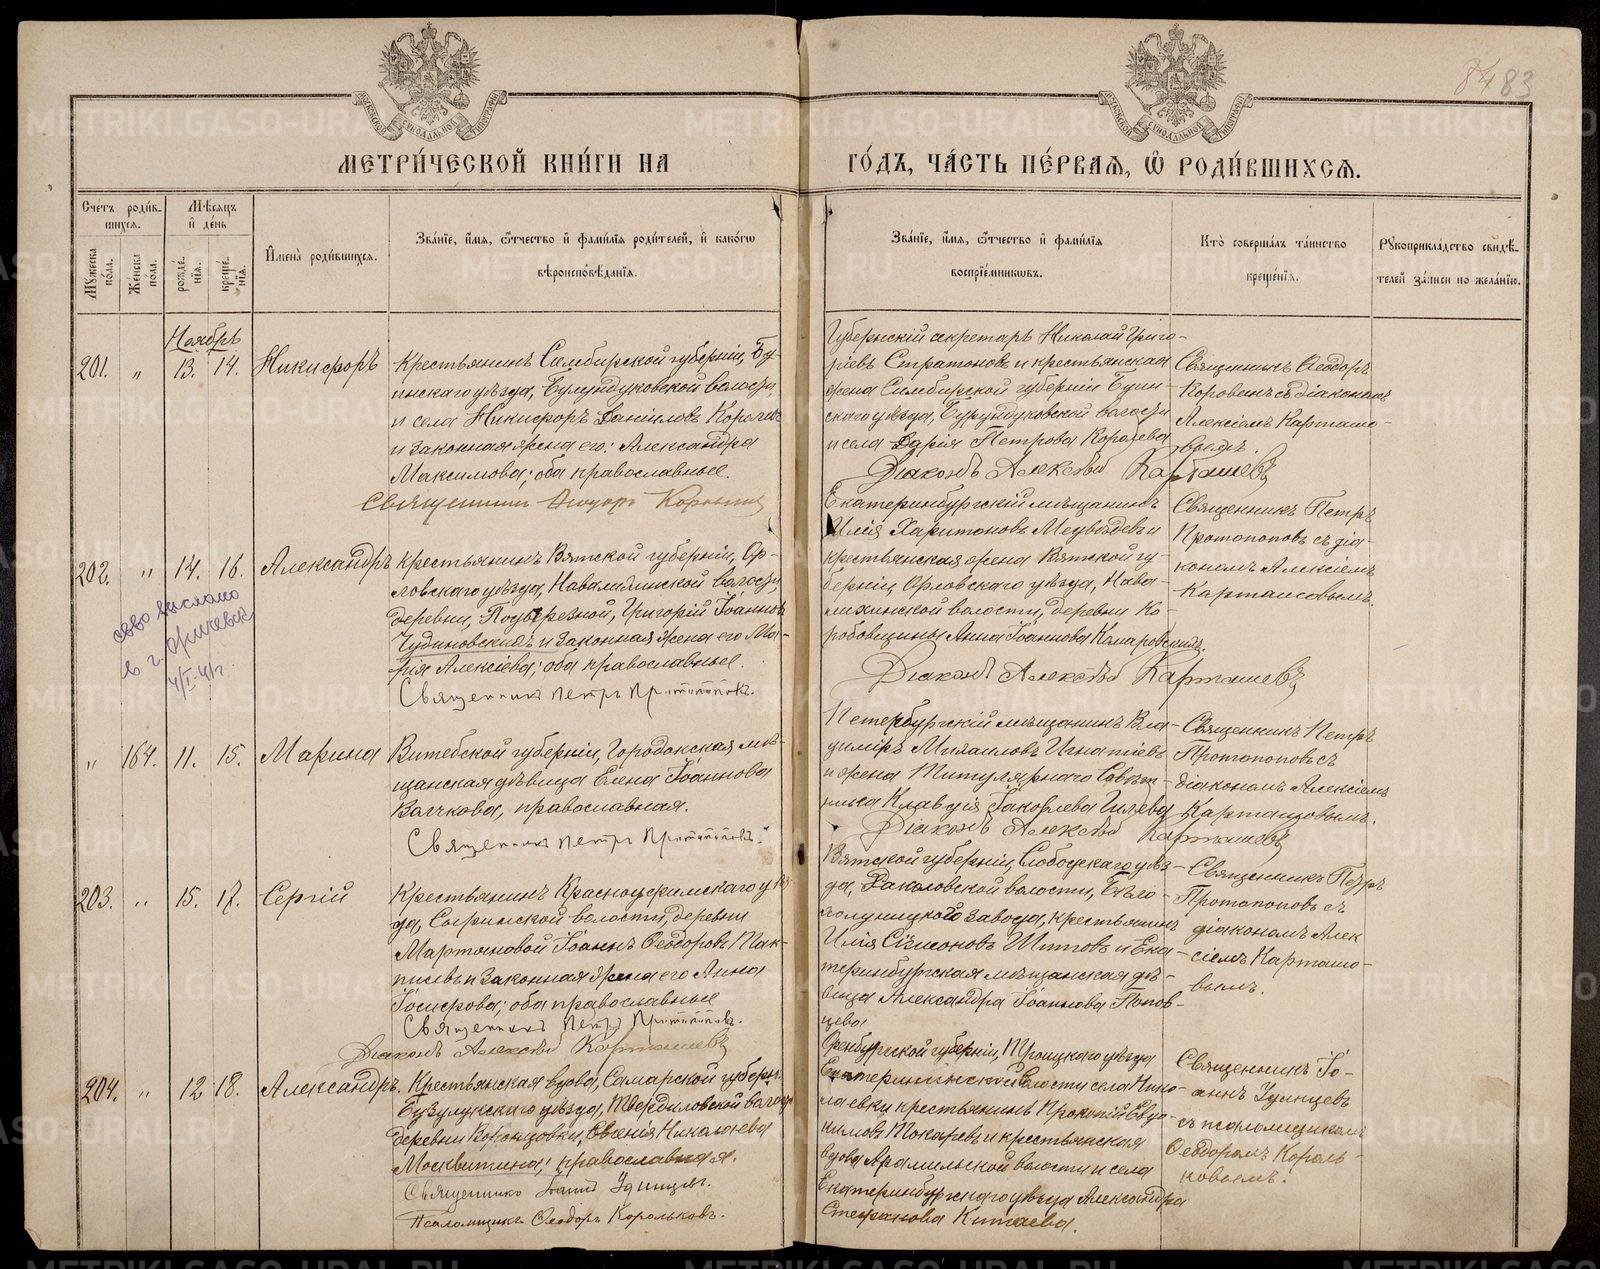 84 83
МЕТРИ́ЧЕСКОЙ КНИ́ГИ НА
ГО́ДЪ, ЧА́СТЬ ПЕ́РВАЯ, Ѽ РОДИ́ВШИХСЯ.
Счетъ роди́в-
шихся.
Мѣсяцъ
и де́нь
Мꙋжеска по́ла.
Же́нска по́ла.
рожде́-
нїя.
креще́-
нїя.
Имена̀ роди́вшихся.
Зва́нїе, и́мя, о́тчество и фами́лїя роди́телей, и како́гѡ
вѣроисповѣ́данїя.
Зва́нїе, и́мя, о́тчество и фами́лїя
воспрїе́мникѡвъ.
Кто̀ соверша́лъ та́инство
креще́нїя.
Рꙋкоприкла́дство свидѣ́-
телей за́писи по жела́нїю.
Ноябрь
201. „ 13. 14. Никифоръ
Крестьянинъ Симбирской губерніи, Бу-
инскаго уѣзда, Бурундуковской волости,
и села Никифоръ Даниловъ
и законная жена его: Александра
Максимова; оба православные.
Священникъ Ѳеодоръ Коровинъ
Губернскій секретарь Николай Григо-
ріевъ Стратоновъ и крестьянская
жена Симбирской губерніи Буин-
скаго уѣзда, Бурундуковской волости
и села Дарія Петрова Королева
Діаконъ Алексѣй Карташевъ
Священникъ Ѳеодоръ
Коровинъ съ діакономъ
Алексіемъ Карташо-
вымъ.
202. „ 14. 16. Александръ
Крестьянинъ Вятской губерніи, Ор-
ловскаго уѣзда, волости,
деревни, Григорій Іоанновъ
Чудиновскихъ и законная жена его Ма-
рія Алексіева; оба православные.
Священникъ Петръ Протопоповъ.
св-во выслано
в г.
4/I-41г.
Екатеринбургскій мѣщанинъ
Илія Харитоновъ Медвѣдевъ и
крестьянская жена Вятской гу-
берніи, Орловскаго уѣзда,
волости, деревни Ко-
робовщины Анна Іоаннова Комаровскихъ.
Діаконъ Алексѣй Карташевъ
Священникъ Петръ
Протопоповъ съ діа-
кономъ Алексіемъ
Карташовымъ.
„ 164. 11. 15. Марина
Витебской губерніи, Городокская мѣ-
щанская дѣвица Елена Іоаннова
Волчкова, православная.
Священникъ Петръ Протопоповъ.
Петербургскій мѣщанинъ Вла-
диміръ Михаиловъ Игнатіевъ
и жена Титулярнаго Совѣт-
ника Клавдія Іаковлева
Діаконъ Алексѣй Карташевъ
Священникъ Петръ
Протопоповъ съ
діакономъ Алексіемъ
Карташовымъ.
203. „ 15. 17. Сергій
Крестьянинъ Красноуфимскаго уѣз-
да, волости, деревни
Мартьяновой Іоаннъ Ѳеодоровъ
и законная жена его Анна
Іосифова; оба православные
Священникъ Петръ Протопоповъ.
Діаконъ Алексѣй Карташевъ
Вятской губерніи, Слободскаго уѣз-
да, волости, Бѣло-
холуницкаго завода, крестьянинъ
Илія Сѵмеоновъ Шитовъ и Ека-
теринбургская мѣщанская дѣ-
вица Александра Іоаннова Попов-
цева
Священникъ Петръ
Протопоповъ съ
діакономъ Алек-
сіемъ Карташо-
вымъ.
204. „ 12 18. Александръ.
Крестьянская вдова, Самарской губерн.
Бузулукскаго уѣзда, волости,
деревни Воронцовки, Евгенія Николаева
Москвитина; православная.
Священникъ Іоаннъ Удинцевъ.
Псаломщикъ Ѳеодоръ Корольковъ.
Оренбургской губерніи, Троицкаго уѣзда
волости села Нико-
лаевки крестьянинъ Прокопій Евдо-
кимовъ Токаревъ и крестьянская
вдова Арамильской волости и села
Екатеринбургскаго уѣзда Александра
Стефанова Китаева.
Священникъ Іо-
аннъ Удинцевъ
съ псаломщикомъ
Ѳеодоромъ Король-
ковымъ.
METRIKI.GASO-URAL.RU